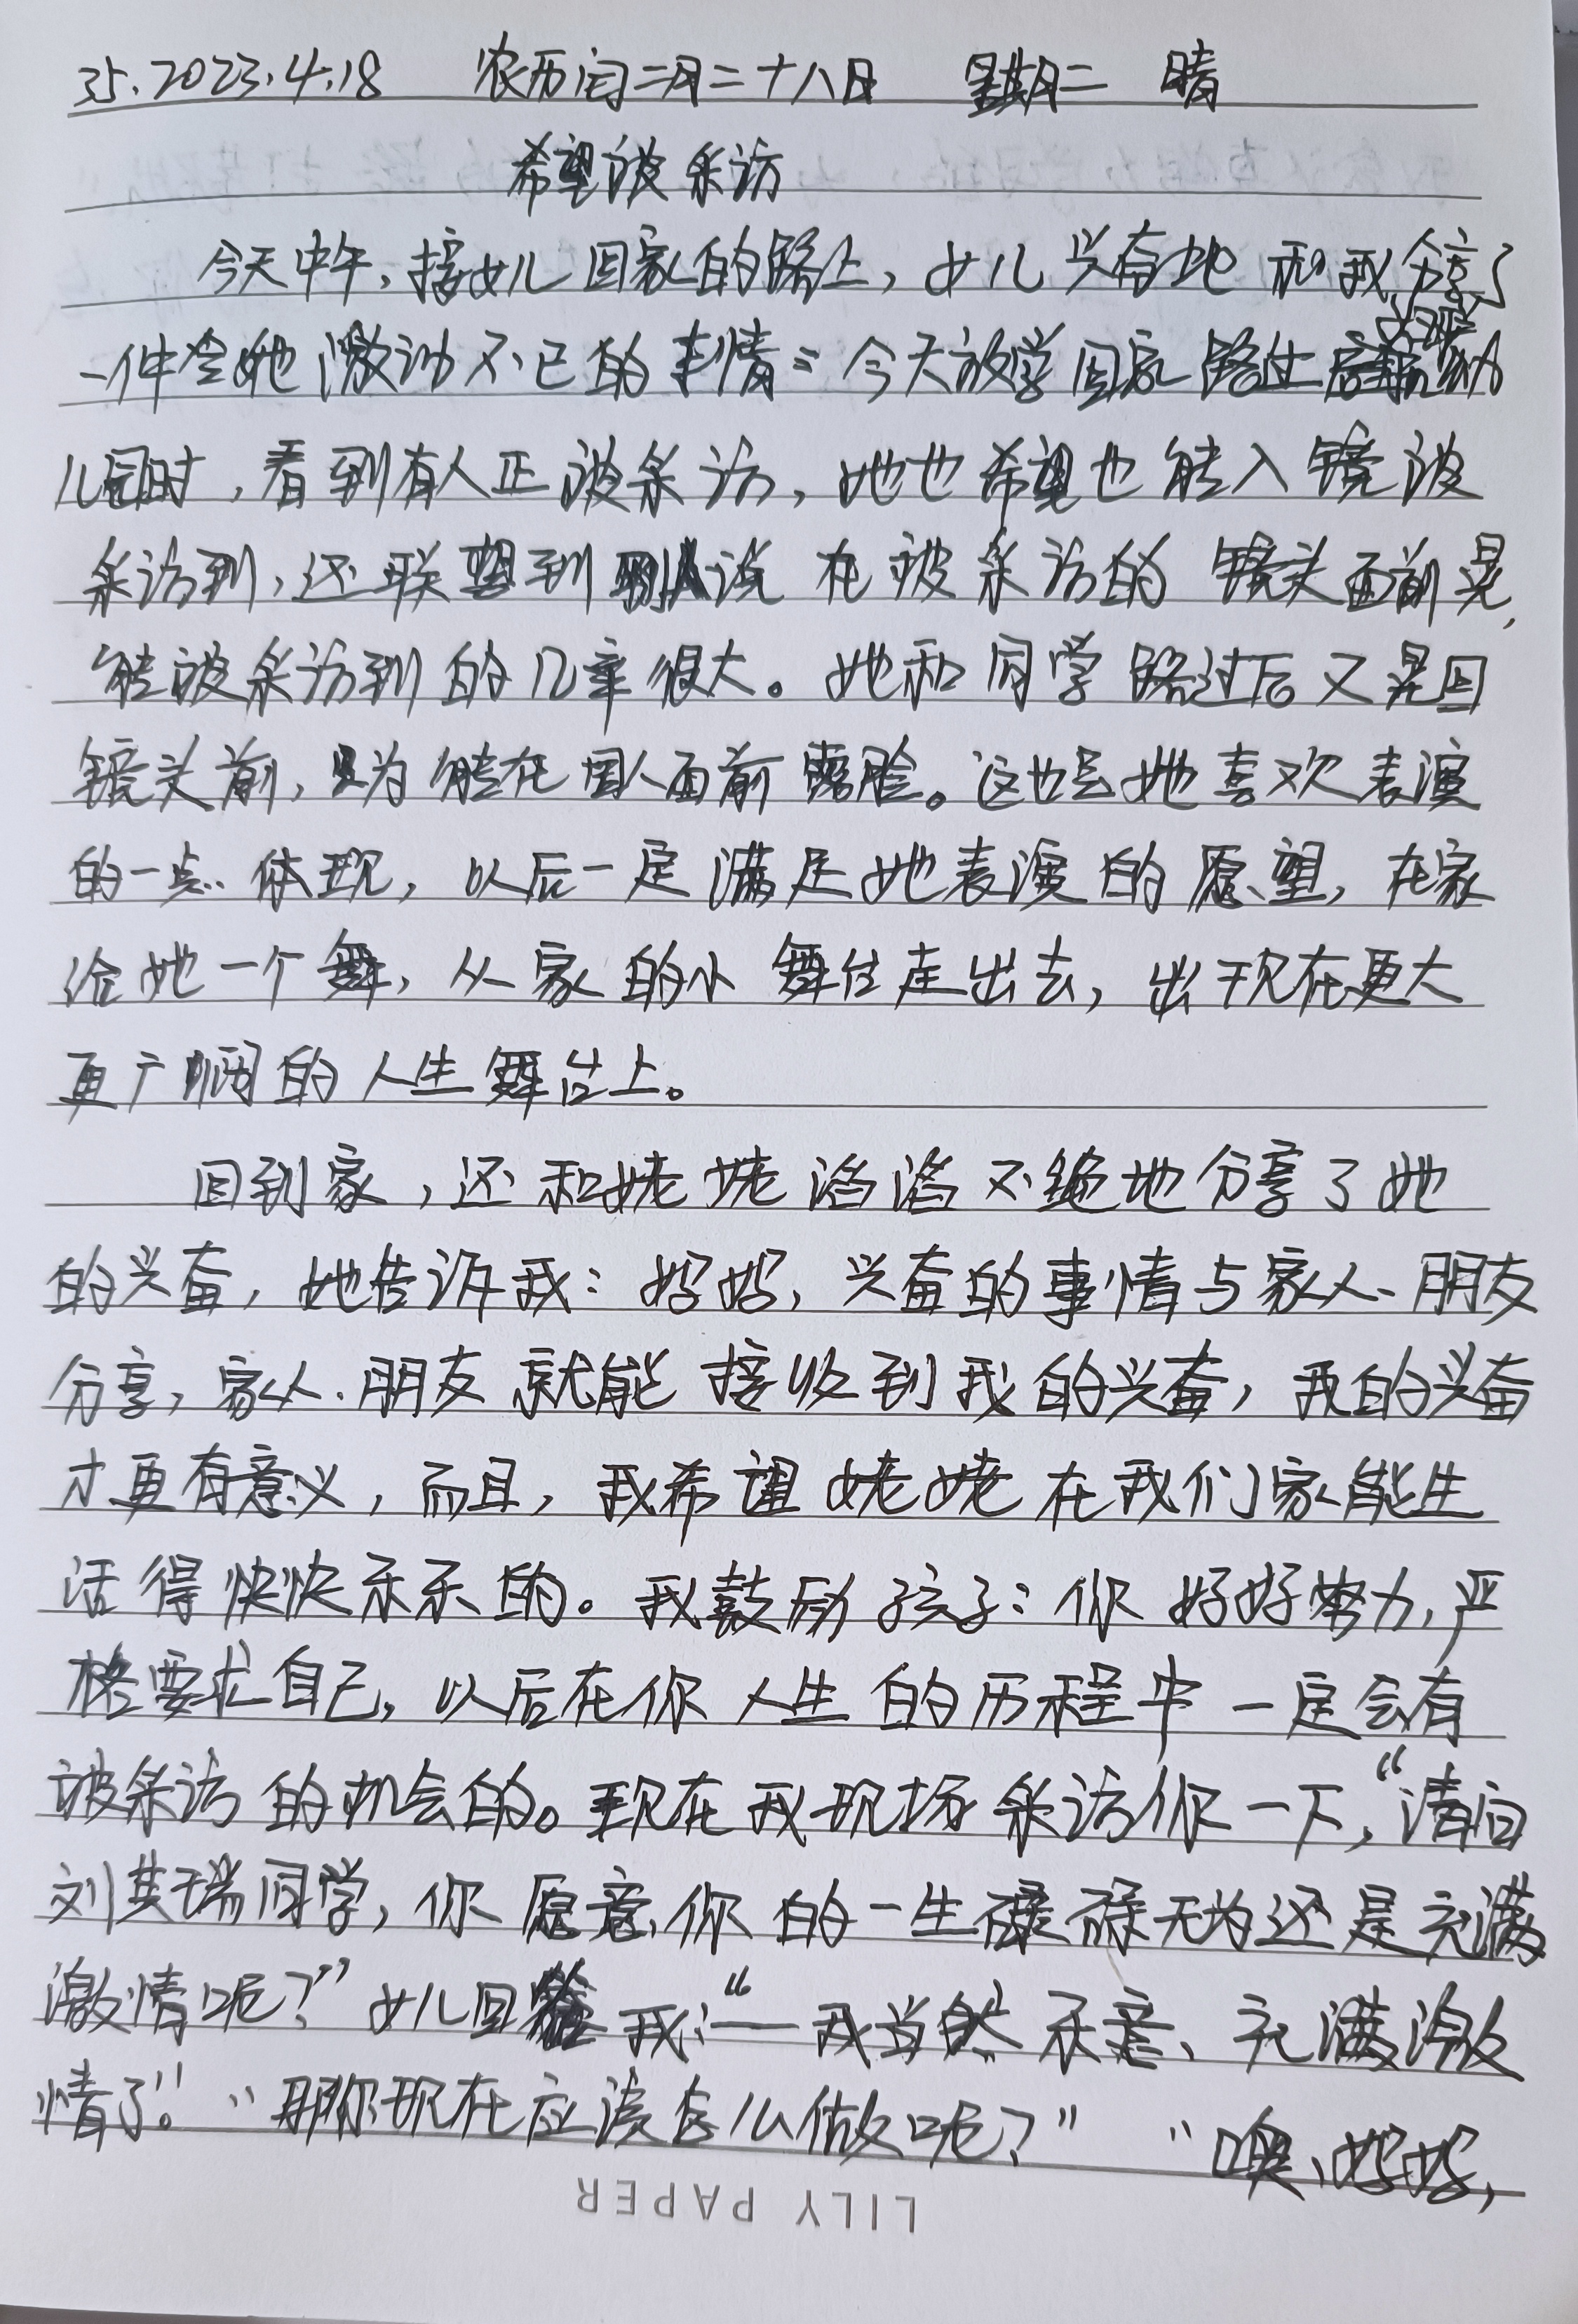 35.2023.4.18 农历闰二月二十八日 星期二 晴
希望被采访
今天中午,接女儿回家的路上,女儿兴奋地和我分享了
一件令她激动不已的事情:今天放学回家路过幼
儿园时,看到有人正被采访,她也希望也能入镜被
采访到,还联想到别人说在被采访的镜头面前晃,
能被采访到的几率很大。她和同学路过后又晃回
镜头前,只为能在国人面前露脸。这也是她喜欢表演
的一点体现,以后一定满足她表演的愿望,在家
给她一个舞,从家的小舞台走出去,出现在更大
更广阔的人生舞台上。
回到家,还和姥姥滔滔不绝地分享了她
的兴奋,她告诉我:妈妈,兴奋的事情与家人、朋友
分享,家人、朋友就能接收到我的兴奋,我的兴奋
才更有意义,而且,我希望姥姥在我们家能生
活得快快乐乐的。我鼓励孩子:你好好努力,严
格要求自己,以后在你人生的历程中一定会有
被采访的机会的。现在我现场采访你一下,“请问
刘其瑞同学,你愿意你的一生碌碌无为还是充满
激情呢?”女儿回答我:“一我当然乐意、充满激
情了!”“那你现在应该怎么做呢?”“噢、妈妈,
LILY PAPER